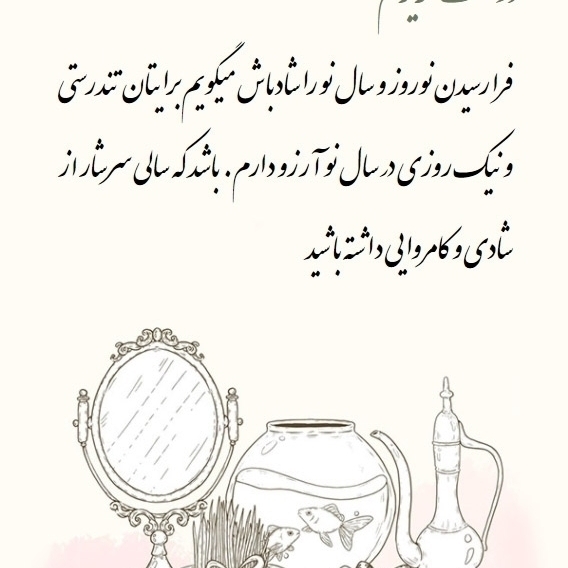 فرا رسیدن نوروز و سال نو را شادباش میگویم برایتان تندرستی
و نیک روزی در سال نو آرزو دارم. باشد که سالی سرشار از
شادی و کامروایی داشته باشید